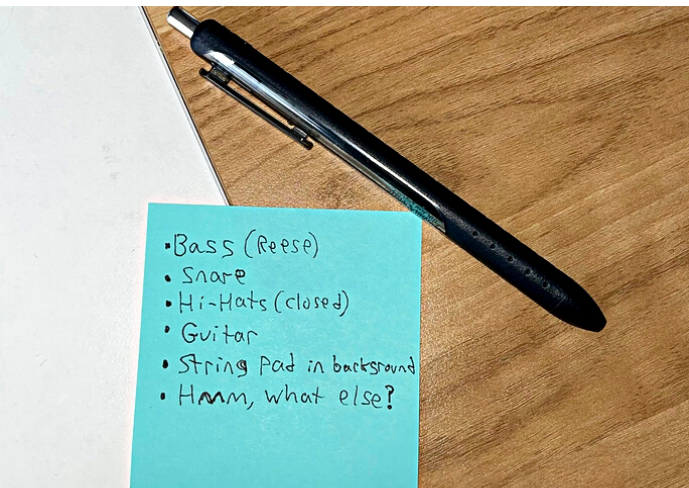 •Bass (Reese)
• Snare
• Hi-Hats (closed)
• Guitar
• String Pad in background
• Hmm, what else?